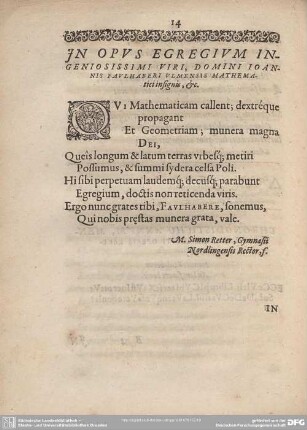 14
IN OPVS EGREGIVM IN-
GENIOSISSIMI VIRI, DOMINI IOAN-
NIS FAVLHABERI VLMENSIS MATHEMA-
tici insignis, &c.
QVI Mathematicam callent; dextréque
propagant
Et Geometriam; munera magna
DEI,
Queîs longum & latum terras vrbesq; metiri
Possumus, & summi sydera celsa Poli.
Hi sibi perpetuam laudemq; decusq; parabunt
Egregium, doctis non reticenda viris.
Ergo nunc grates tibi, FAVLHABERE, sonemus,
Qui nobis præstas munera grata, vale.
M. Simon Retter, Gymnasii
Nordlingensis Rector, f.
IN